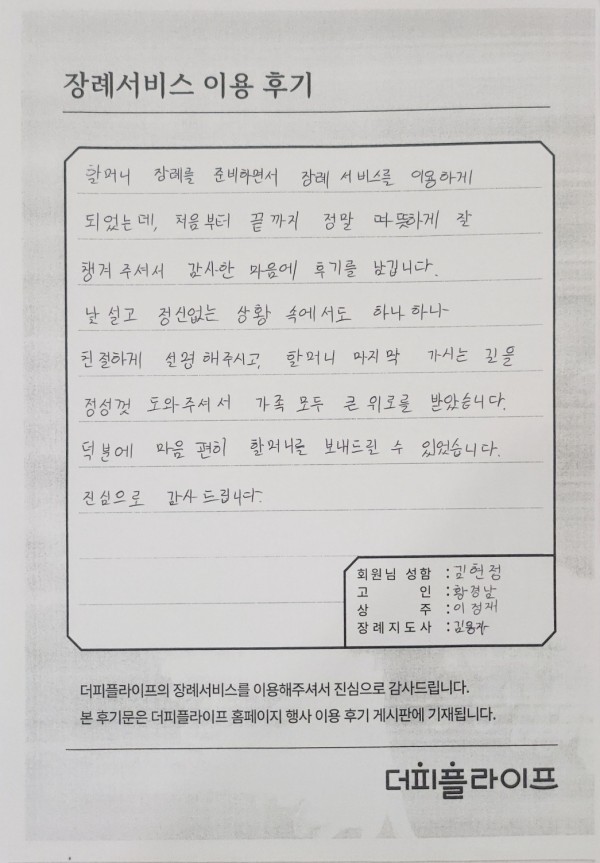 장례서비스 이용 후기
할머니 장례를 준비하면서 장례 서비스를 이용하게
되었는데, 처음부터 끝까지 정말 따뜻하게 잘
챙겨 주셔서 감사한 마음에 후기를 남깁니다.
낯설고 정신없는 상황 속에서도 하나하나
친절하게 설명해주시고, 할머니 마지막 가시는 길을
정성껏 도와주셔서 가족 모두 큰 위로를 받았습니다.
덕분에 마음 편히 할머니를 보내드릴 수 있었습니다.
진심으로 감사드립니다.
회원님 성함 : 김현정
고 인 : 황경남
상 주 : 이정재
장례지도사 :
더피플라이프의 장례서비스를 이용해주셔서 진심으로 감사드립니다.
본 후기문은 더피플라이프 홈페이지 행사 이용 후기 게시판에 기재됩니다.
더피플라이프